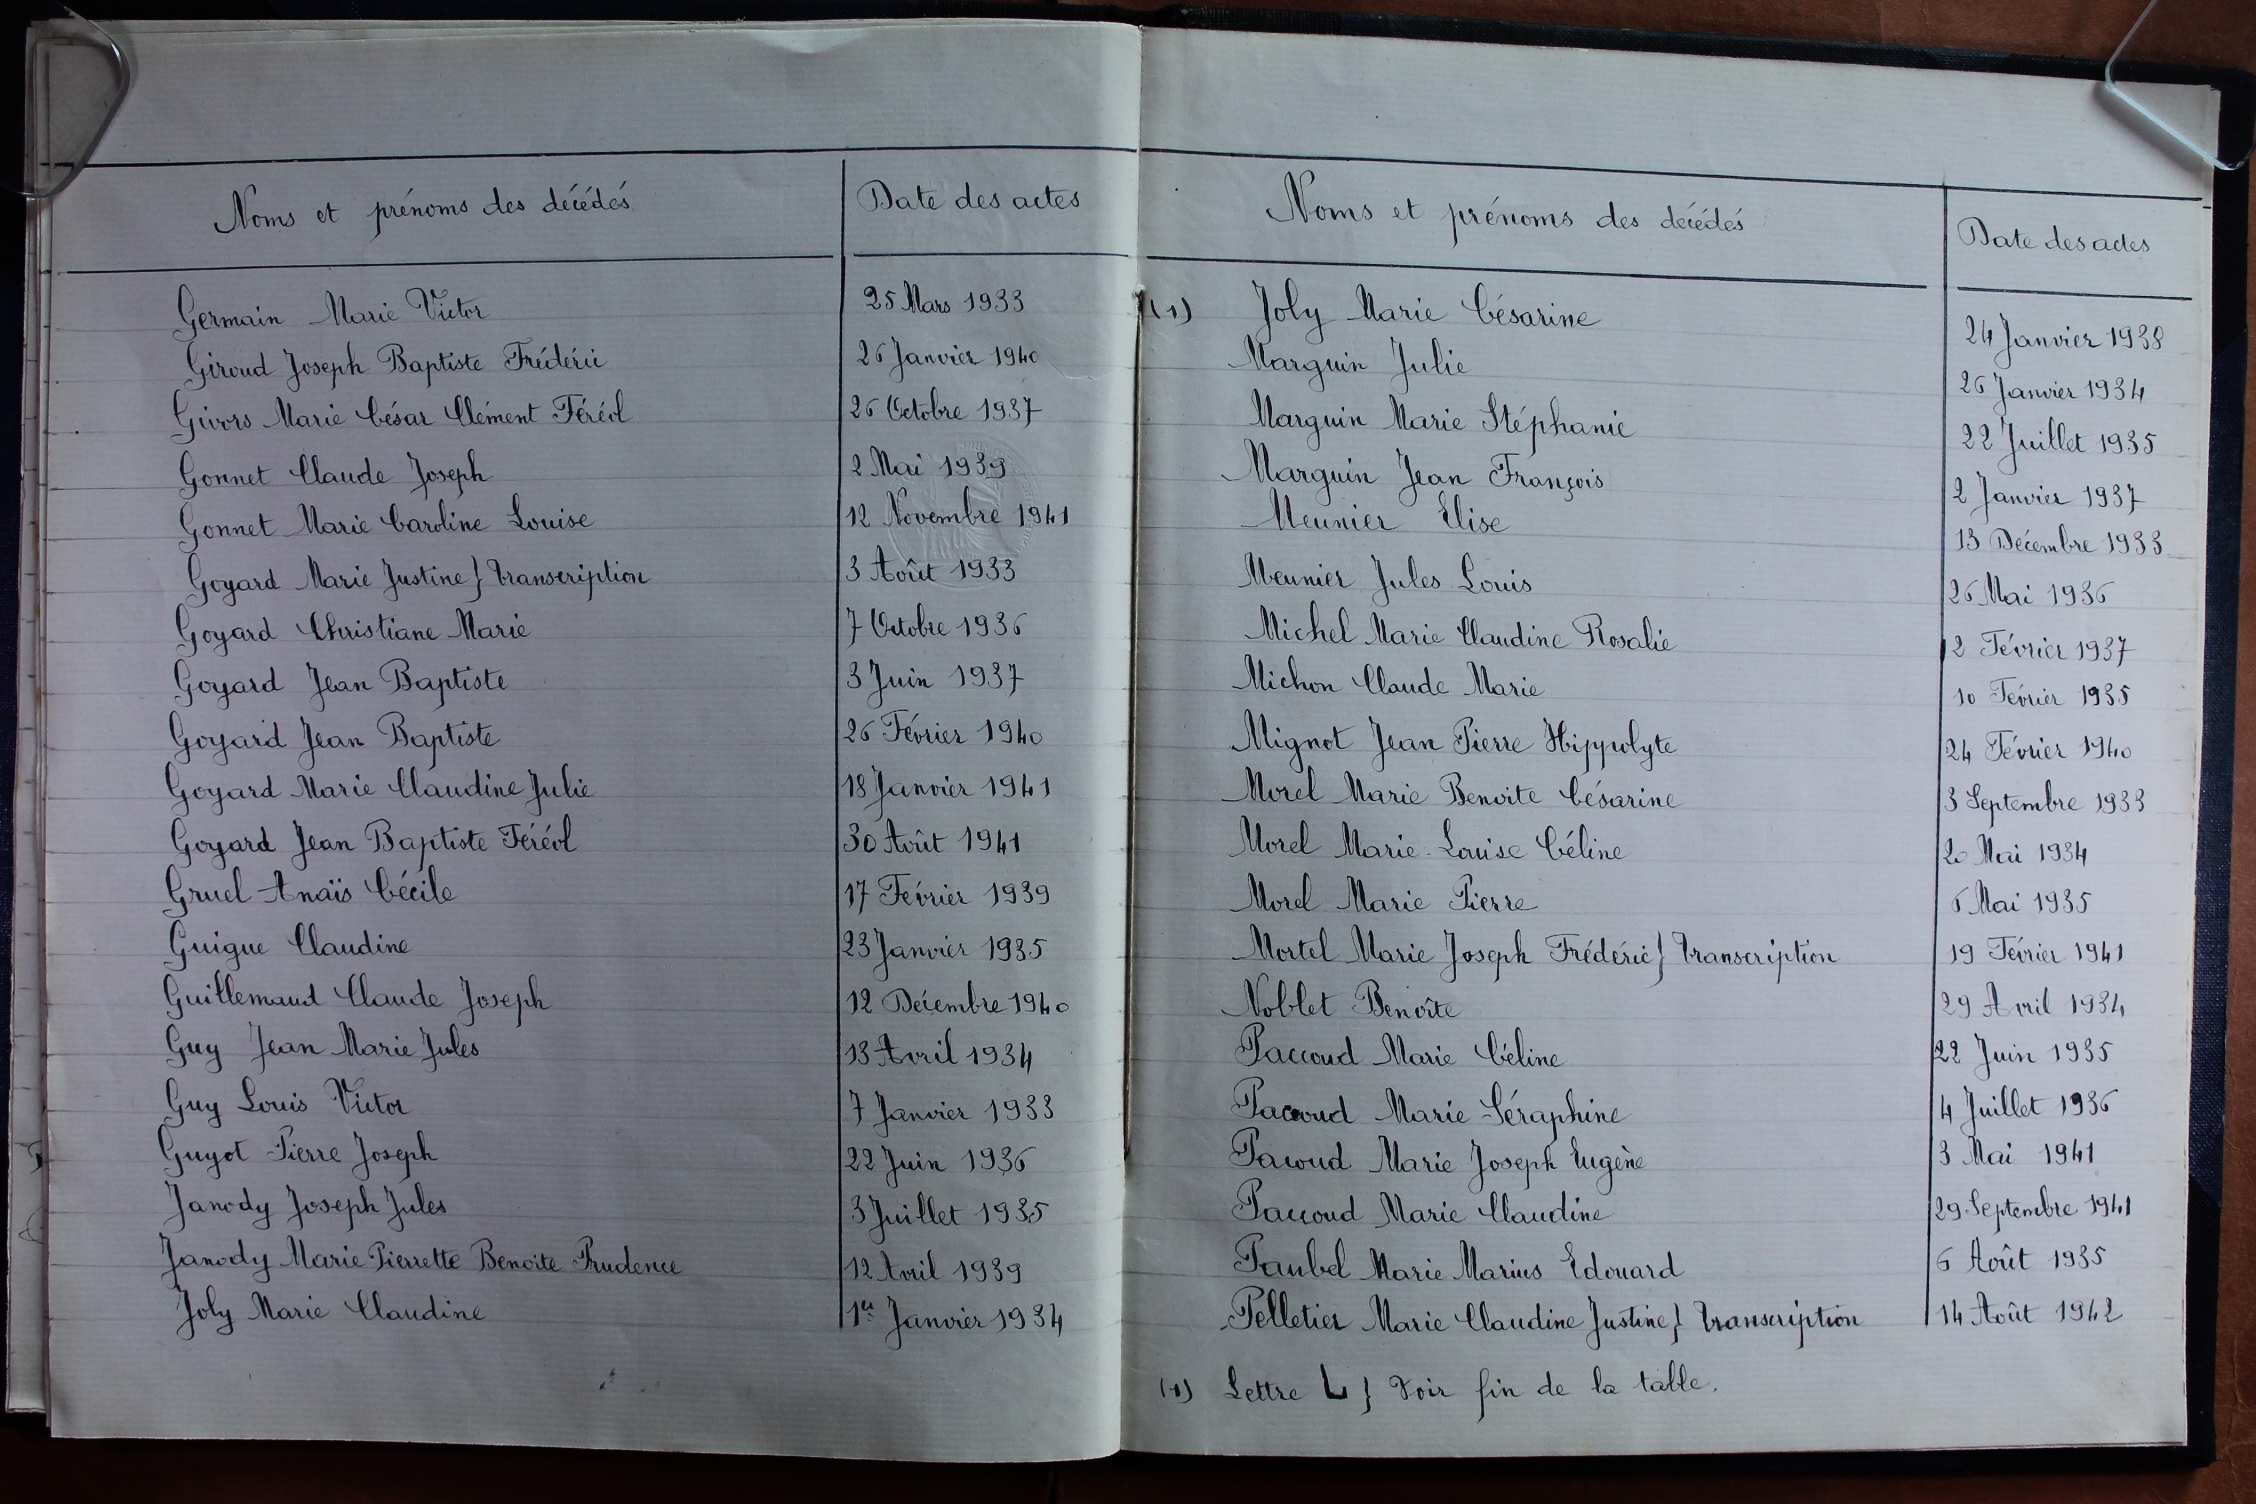 Noms et prénoms des décédés Date des actes
Germain Marie Victor 25 Mars 1933
Giroud Joseph Baptiste Frédéric 26 Janvier 1940
Givors Marie César Clément Féréol 26 Octobre 1937
Gonnet Claude Joseph 2 Mai 1939
Gonnet Marie Caroline Louise 12 Novembre 1941
Goyard Marie Justine } transcription 3 Août 1933
Goyard Christiane Marie 7 Octobre 1936
Goyard Jean Baptiste 3 Juin 1937
Goyard Jean Baptiste 26 Février 1940
Goyard Marie Claudine Julie 18 Janvier 1941
Goyard Jean Baptiste Féréol 30 Août 1941
Gruel Anaïs Cécile 17 Février 1939
Guigue Claudine 23 Janvier 1935
Guillemaud Claude Joseph 12 Décembre 1940
Guy Jean Marie Jules 13 Avril 1934
Guy Louis Victor 7 Janvier 1933
Guyot Pierre Joseph 22 Juin 1936
Janody Joseph Jules 3 Juillet 1935
Janody Marie Pierrette Benoite Prudence 12 Avril 1939
Joly Marie Claudine 1er Janvier 1934
Noms et prénoms des décédés Date des actes
(1) Joly Marie Césarine 24 Janvier 1938
Marguin Julie 26 Janvier 1934
Marguin Marie Stéphanie 22 Juillet 1935
Marguin Jean François 2 Janvier 1937
Meunier Elise 13 Décembre 1933
Meunier Jules Louis 26 Mai 1936
Michel Marie Claudine Rosalie 2 Février 1937
Michon Claude Marie 10 Février 1935
Mignot Jean Pierre Hippolyte 24 Février 1940
Morel Marie Benoite Césarine 3 Septembre 1933
Morel Marie-Louise Céline 20 Mai 1934
Morel Marie Pierre 6 Mai 1935
Mortel Marie Joseph Frédéric } transcription 19 Février 1941
Noblet Benoîte 29 Avril 1934
Paccoud Marie Céline 22 Juin 1935
Paccoud Marie Séraphine 4 Juillet 1936
Pacoud Marie Joseph Eugène 3 Mai 1941
Paccoud Marie Claudine 29 Septembre 1941
Paubel Marie Marius Edouard 6 Août 1935
Pelletier Marie Claudine Justine } transcription 14 Août 1942
(1) Lettre L } Voir fin de la table.